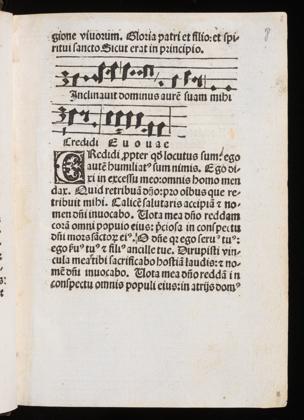 8
gione viuorum. Gloria patri et filio: et spi-
ritui sancto. Sicut erat in principio.
Inclinauit dominus aurē suam mihi
Credidi E u o u a e
CRedidi ꝓpter qđ locutus sum: ego
autē humiliatꝰ sum nimis. Ego di-
xi in excessu meo: omnis homo men
dax. Quid retribuā dño: pro oĩbus que re-
tribuit mihi. Calicē salutaris accipiā ⁊ no-
men dñi inuocabo. Uota mea dño reddam
corā omni populo eius: p̄ciosa in conspectu
dñi mors sāctoꝝ eiꝰ. O dñe qꝛ ego seruꝰ tuꝰ:
ego ẜuꝰ tuꝰ ⁊ filiꝰ ancille tue. Dirupisti vin-
cula mea: tibi sacrificabo hostiā laudis: ⁊ no-
mē dñi inuocabo. Uota mea dño reddā in
conspectu omnis populi eius: in atrijs domꝰ